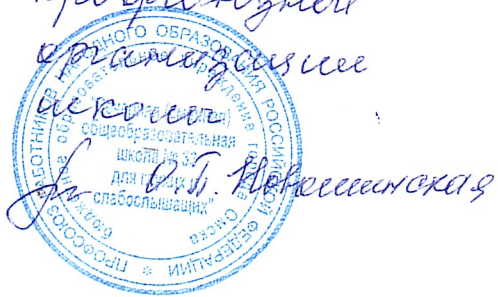 профсоюзной
организации
школы
О.П. Новошинская
ПРОФСОЮЗ РАБОТНИКОВ НАРОДНОГО ОБРАЗОВАНИЯ РОССИЙСКОЙ ФЕДЕРАЦИИ *
бюджетное образовательное учреждение города Омска
общеобразовательная
школа № 33
для глухих и
слабослышащих"